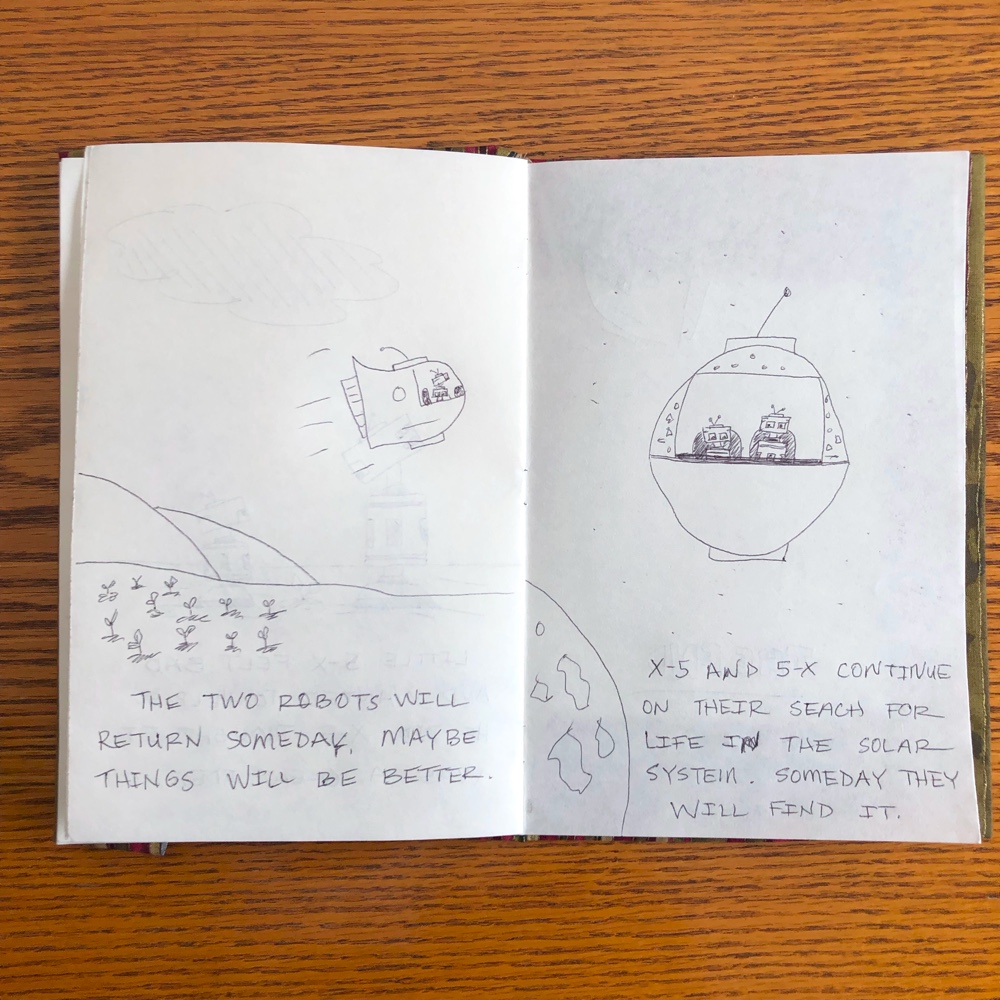 THE TWO ROBOTS WILL
RETURN SOMEDAY, MAYBE
THINGS WILL BE BETTER.
X-5 AND 5-X CONTINUE
ON THEIR SEACH FOR
LIFE IN THE SOLAR
SYSTEM. SOMEDAY THEY
WILL FIND IT.